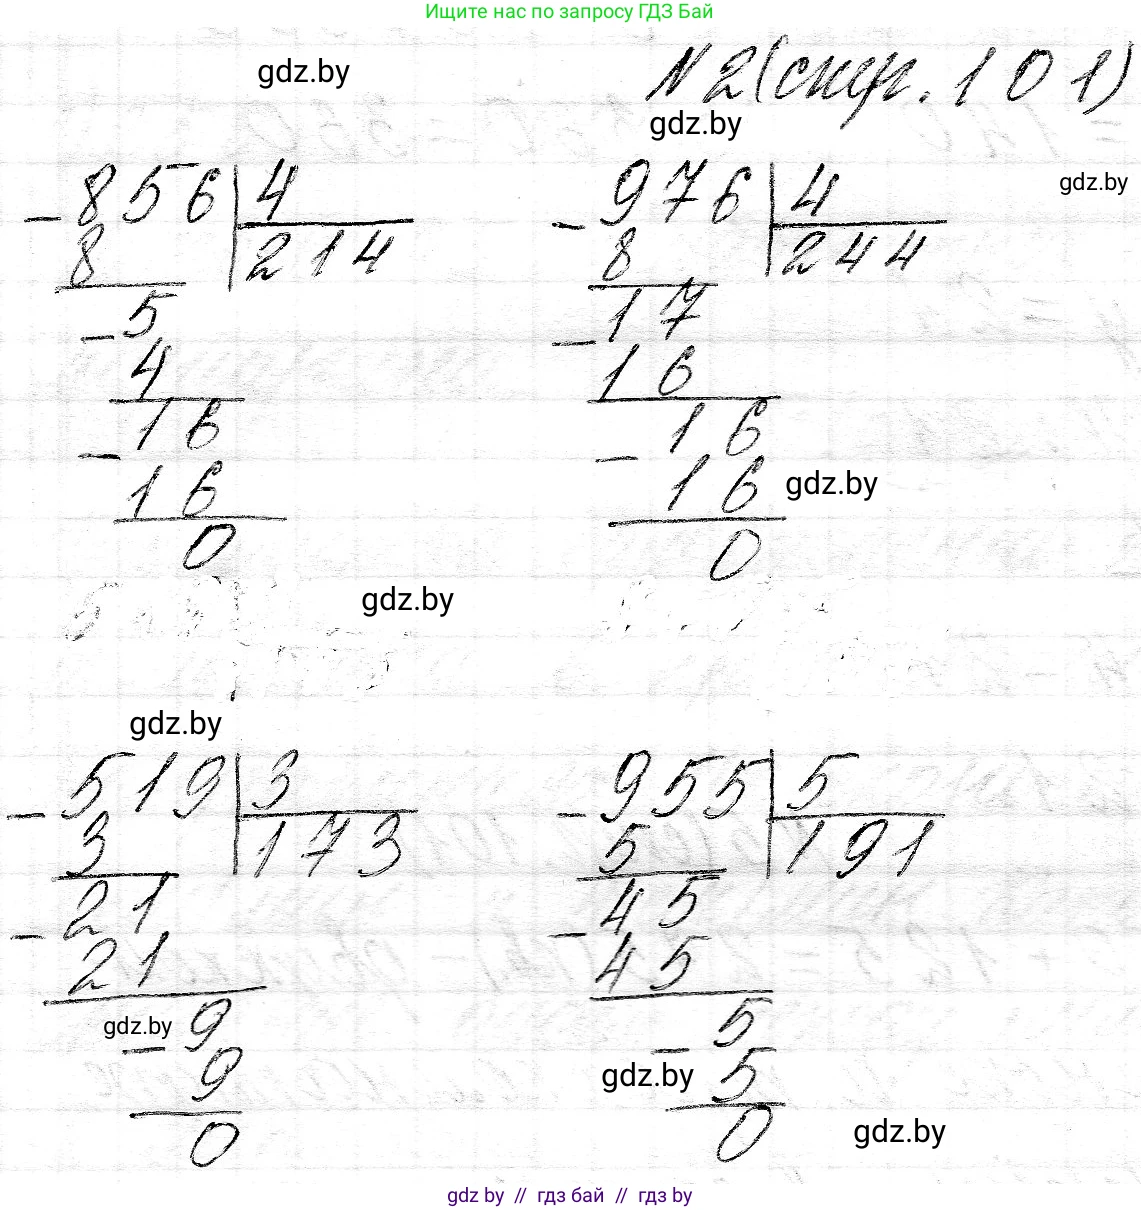 Ищите нас по запросу ГДЗ Бай
gdz.by
№2(стр. 101)
gdz.by
gdz.by
- 856 | 4
8 | 214
- 5
4
- 16
16
0
- 976 | 4
8 | 244
- 17
16
- 16
16
0
gdz.by
gdz.by
gdz.by
- 519 | 3
3 | 173
- 21
21
gdz.by
- 9
9
0
- 955 | 5
5 | 191
- 45
45
- 5
gdz.by
5
0
gdz.by
gdz by // гдз бай // гдз by